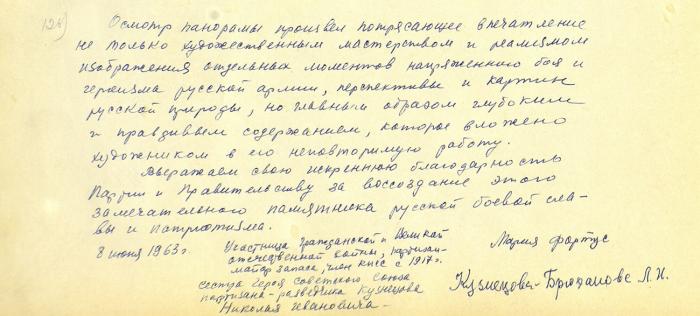 126)
Осмотр панорамы произвел потрясающее впечатление
не только художественным мастерством и реализмом
изображения отдельных моментов напряженного боя и
героизма русской армии, перспективы и картин
русской природы, но главным образом глубоким
и правдивым содержанием, которое вложено
художником в его неповторимую работу.
Выражаем свою искреннюю благодарность
Партии и Правительству за воссоздание этого
замечательного памятника русской боевой сла-
вы и патриотизма.
8 июня 1963 г.
Участница гражданской и Великой
отечественной войны,
майор запаса, член КПСС с 1917 г.
Мария Фортус
сестра героя Советского Союза
партизана-разведчика Кузнецова
Николая Ивановича -
Кузнецова-Брюханова Л. И.